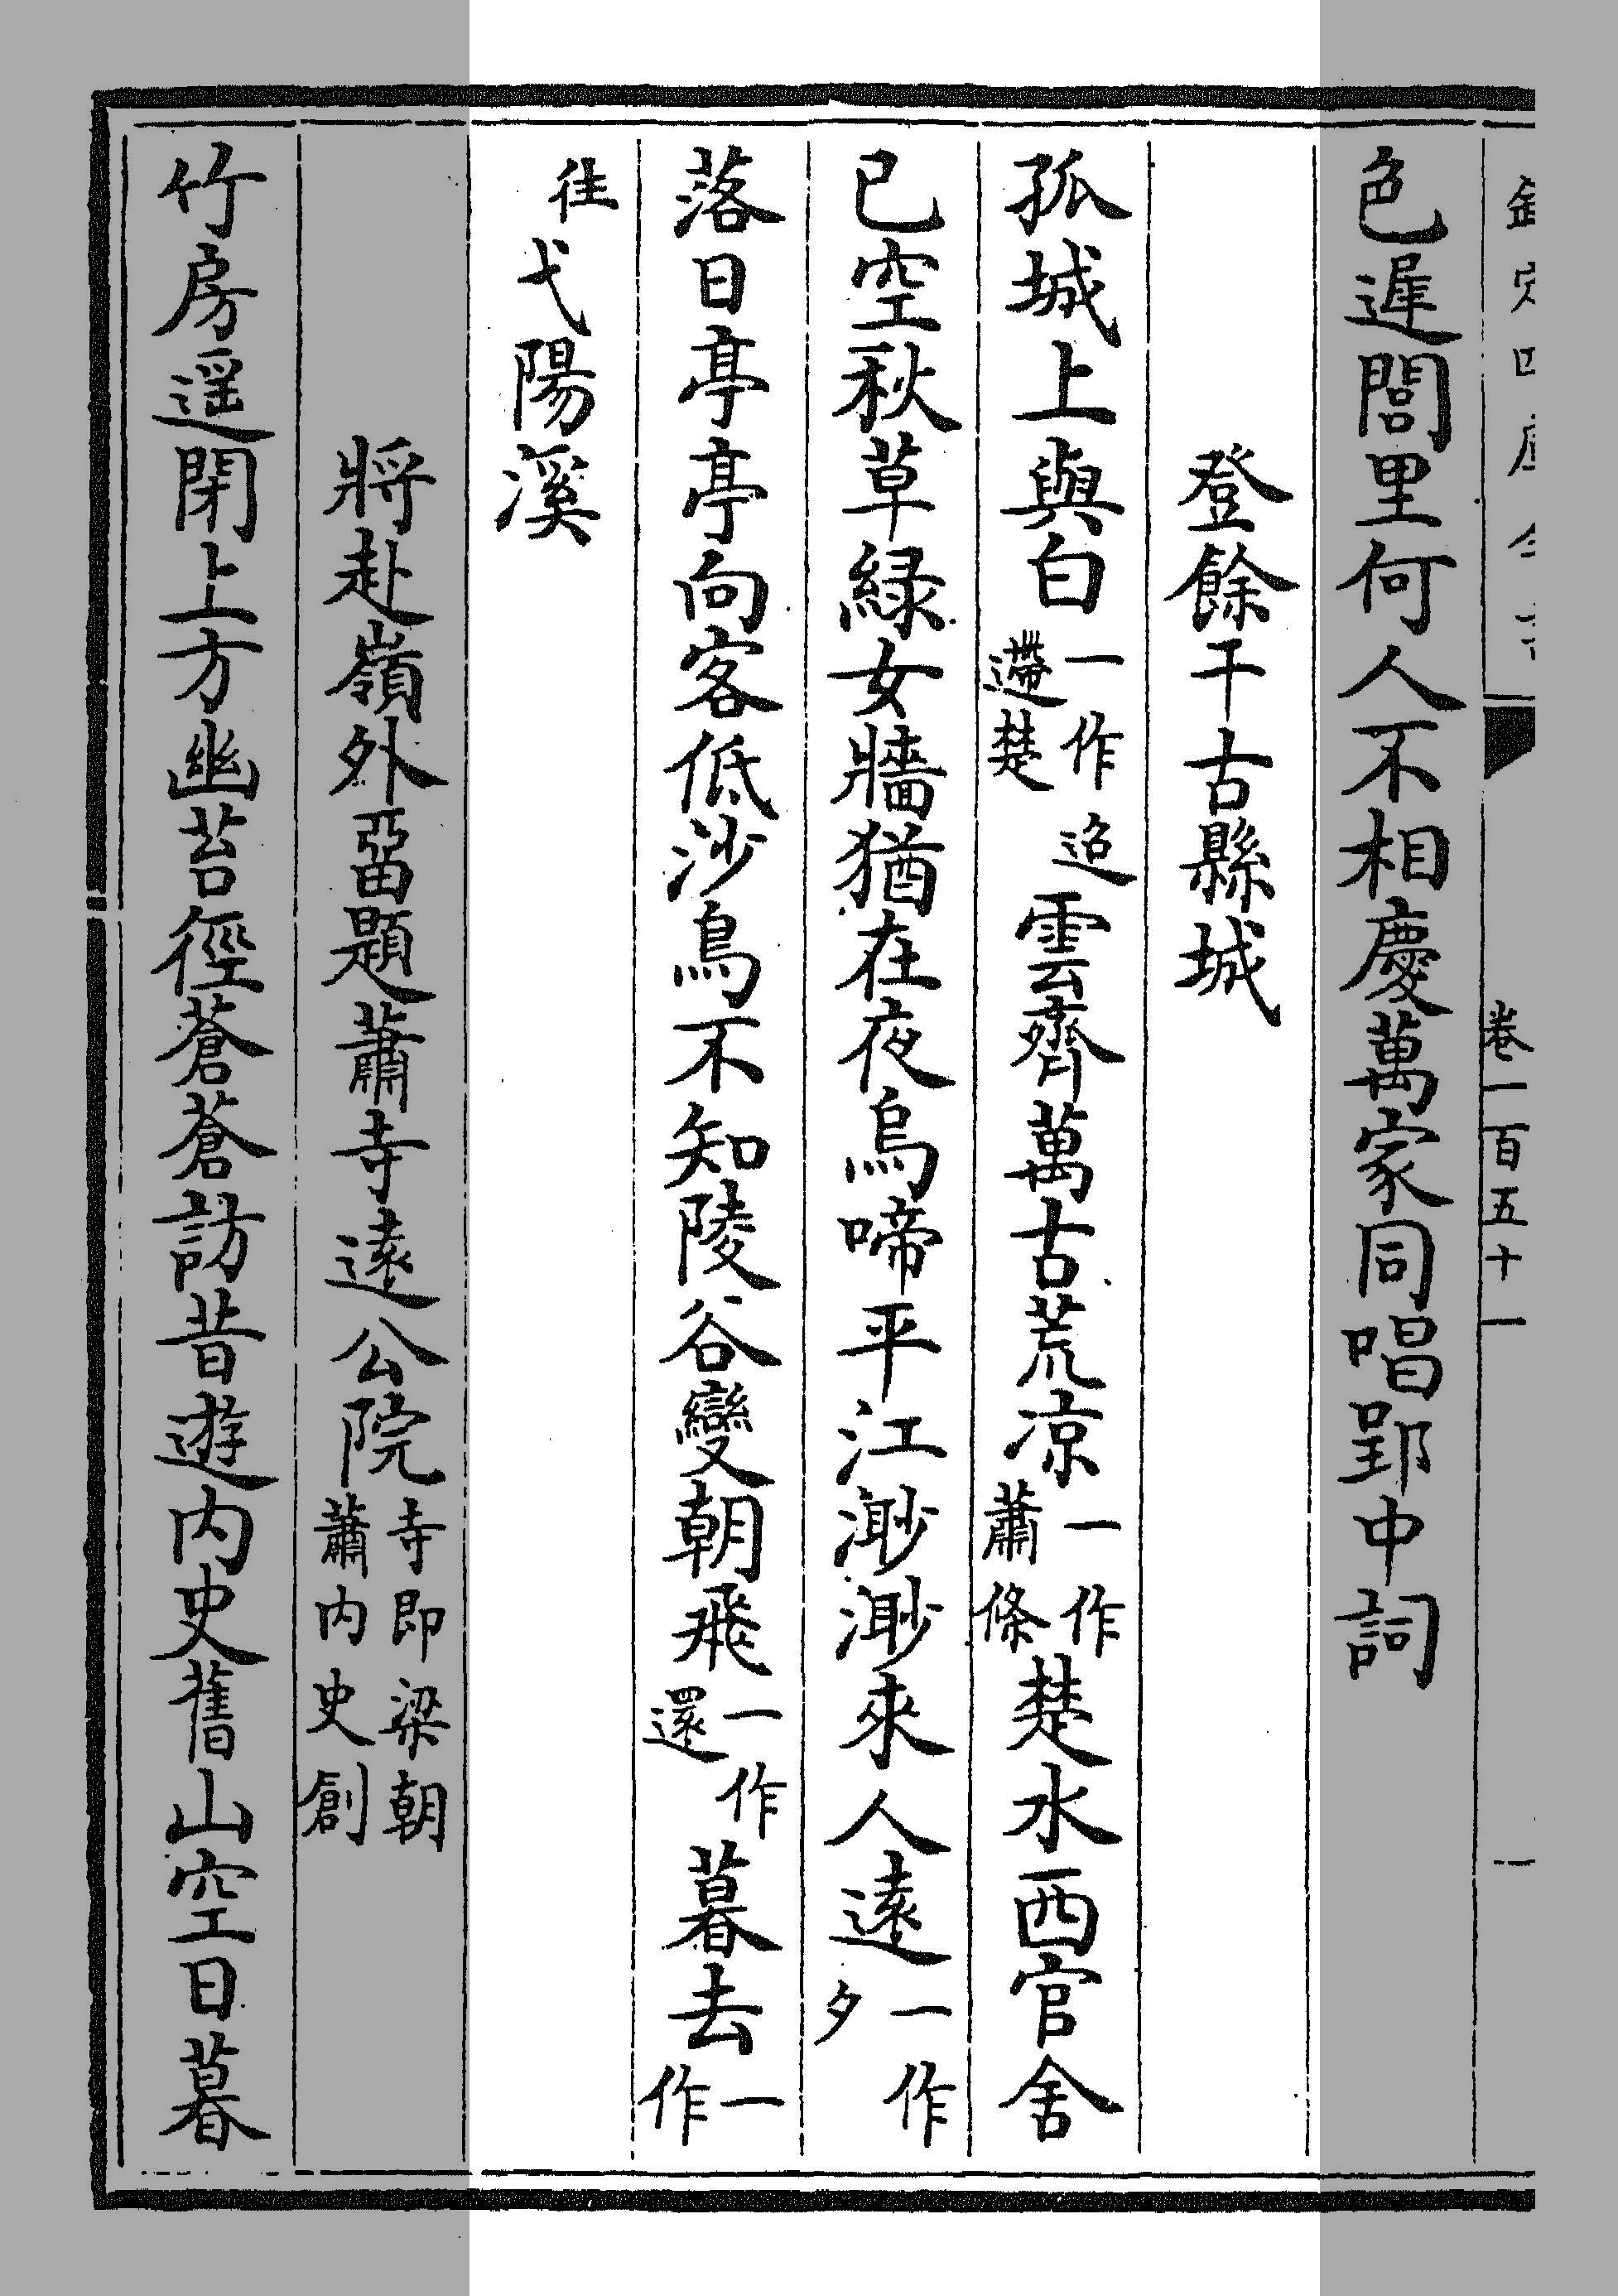 卷一百五十一
一
色遲閭里何人不相慶萬家同唱郢中詞
登餘干古縣城
孤城上與白一作迢遰楚雲齊萬古荒凉一作蕭條楚水西官舍
已空秋草緑女牆猶在夜烏啼平江渺渺來人逺一作夕
落日亭亭向客低沙鳥不知陵谷變朝飛一作還暮去一作
往弋陽溪
將赴嶺外留題蕭寺逺公院寺即梁朝蕭内史創
竹房遥閉上方幽苔徑蒼蒼訪昔遊内史舊山空日暮